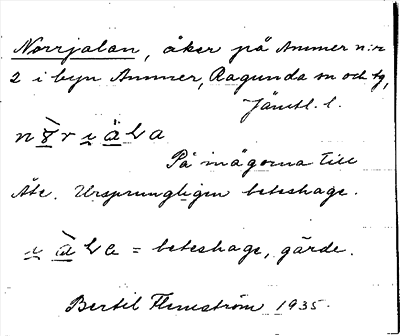 Norrjalan, åker på Ammer n:r
2 i byn Ammer, Ragunda sn och tg,
Jämtl. l.
På inägorna till
Åte. Ursprungligen beteshage.
= beteshage, gärde.
Bertil Flemström 1935.